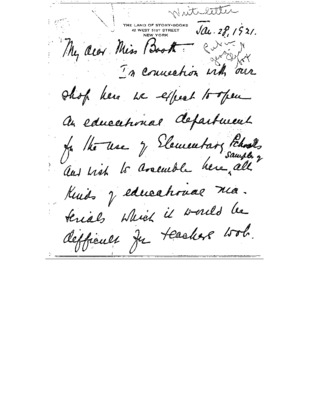 Write letter
THE LAND OF STORY-BOOKS
10 WEST 51ST STREET
NEW YORK
Jan. 28, 1921.
My dear Miss Book:
Put in
In connection with our
shop here we expect to open
an educational department
for the use of Elementary Schools
and wish to assemble here, samples of all
kinds of educational ma-
terials which it would be
difficult for teachers to ob-